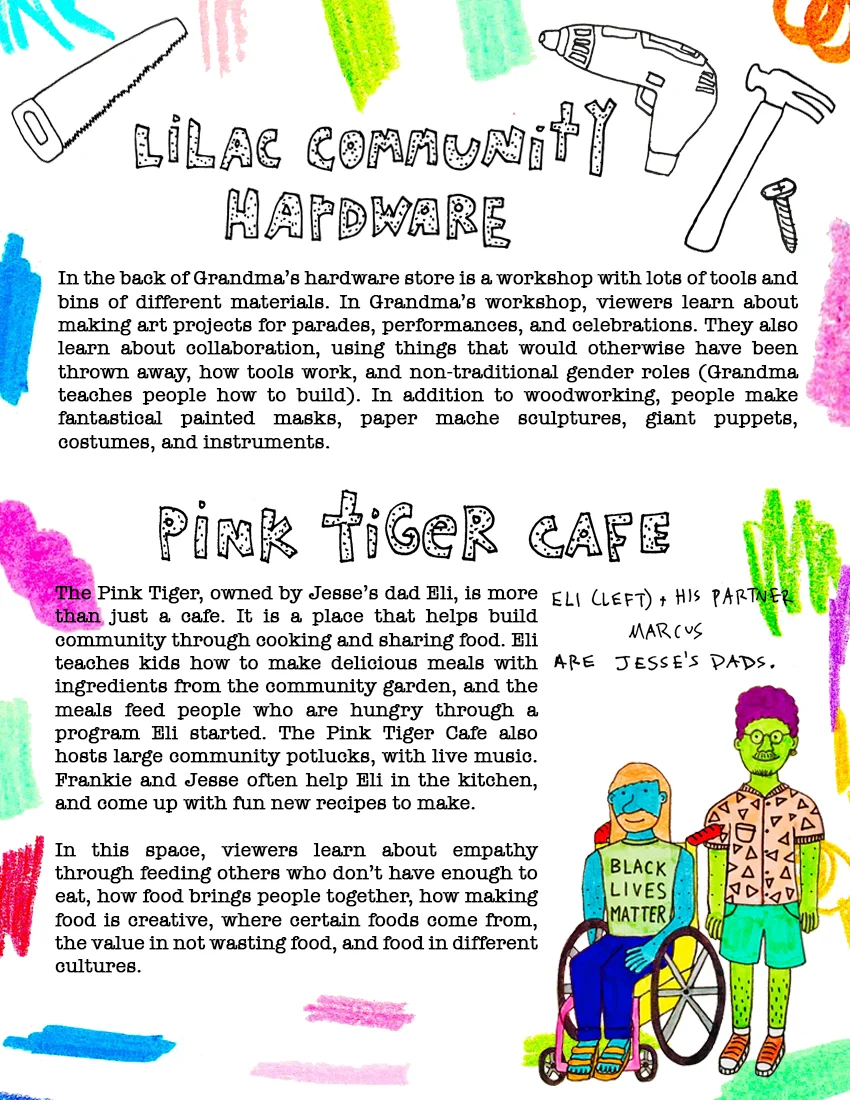 LiLAC COMMUNitY
HArDWARE
In the back of Grandma's hardware store is a workshop with lots of tools and
bins of different materials. In Grandma's workshop, viewers learn about
making art projects for parades, performances, and celebrations. They also
learn about collaboration, using things that would otherwise have been
thrown away, how tools work, and non-traditional gender roles (Grandma
teaches people how to build). In addition to woodworking, people make
fantastical painted masks, paper mache sculptures, giant puppets,
costumes, and instruments.
PiNK tiGeR CAFE
The Pink Tiger, owned by Jesse's dad Eli, is more
than just a cafe. It is a place that helps build
community through cooking and sharing food. Eli
teaches kids how to make delicious meals with
ingredients from the community garden, and the
meals feed people who are hungry through a
program Eli started. The Pink Tiger Cafe also
hosts large community potlucks, with live music.
Frankie and Jesse often help Eli in the kitchen,
and come up with fun new recipes to make.
In this space, viewers learn about empathy
through feeding others who don't have enough to
eat, how food brings people together, how making
food is creative, where certain foods come from,
the value in not wasting food, and food in different
cultures.
ELI (LEFT) + HIS PARTNER
MARCUS
ARE JESSE'S DADS.
BLACK
LIVES
MATTER